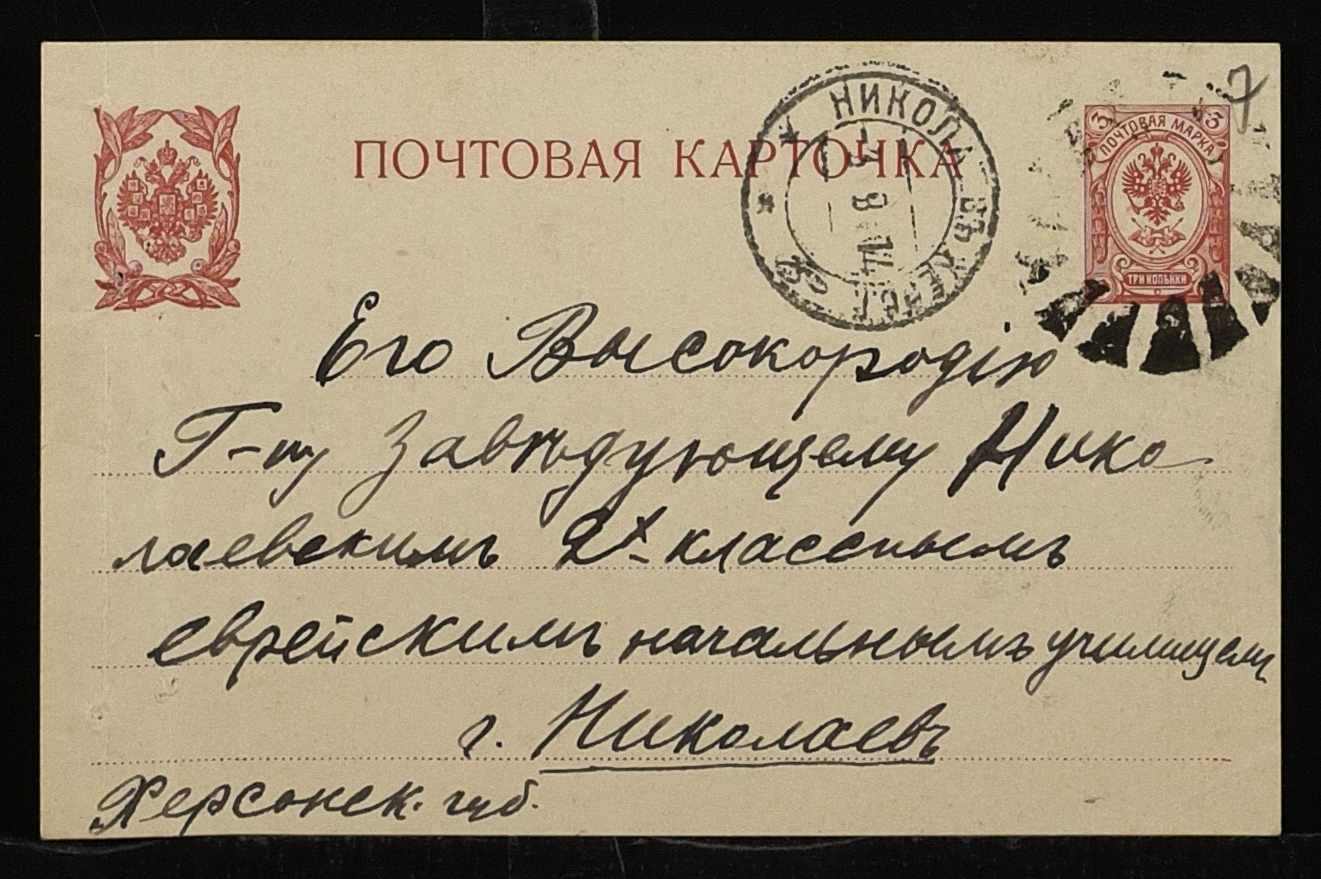 ПОЧТОВАЯ КАРТОЧКА
3 3
ПОЧТОВАЯ МАРКА
ТРИ КОПѢЙКИ
7
8 14
Его Высокородію
Г-ну Завѣдующему Нико
лаевскимъ 2х-класснымъ
еврейскимъ начальнымъ училищемъ
г. Николаевъ
Херсонск. губ.